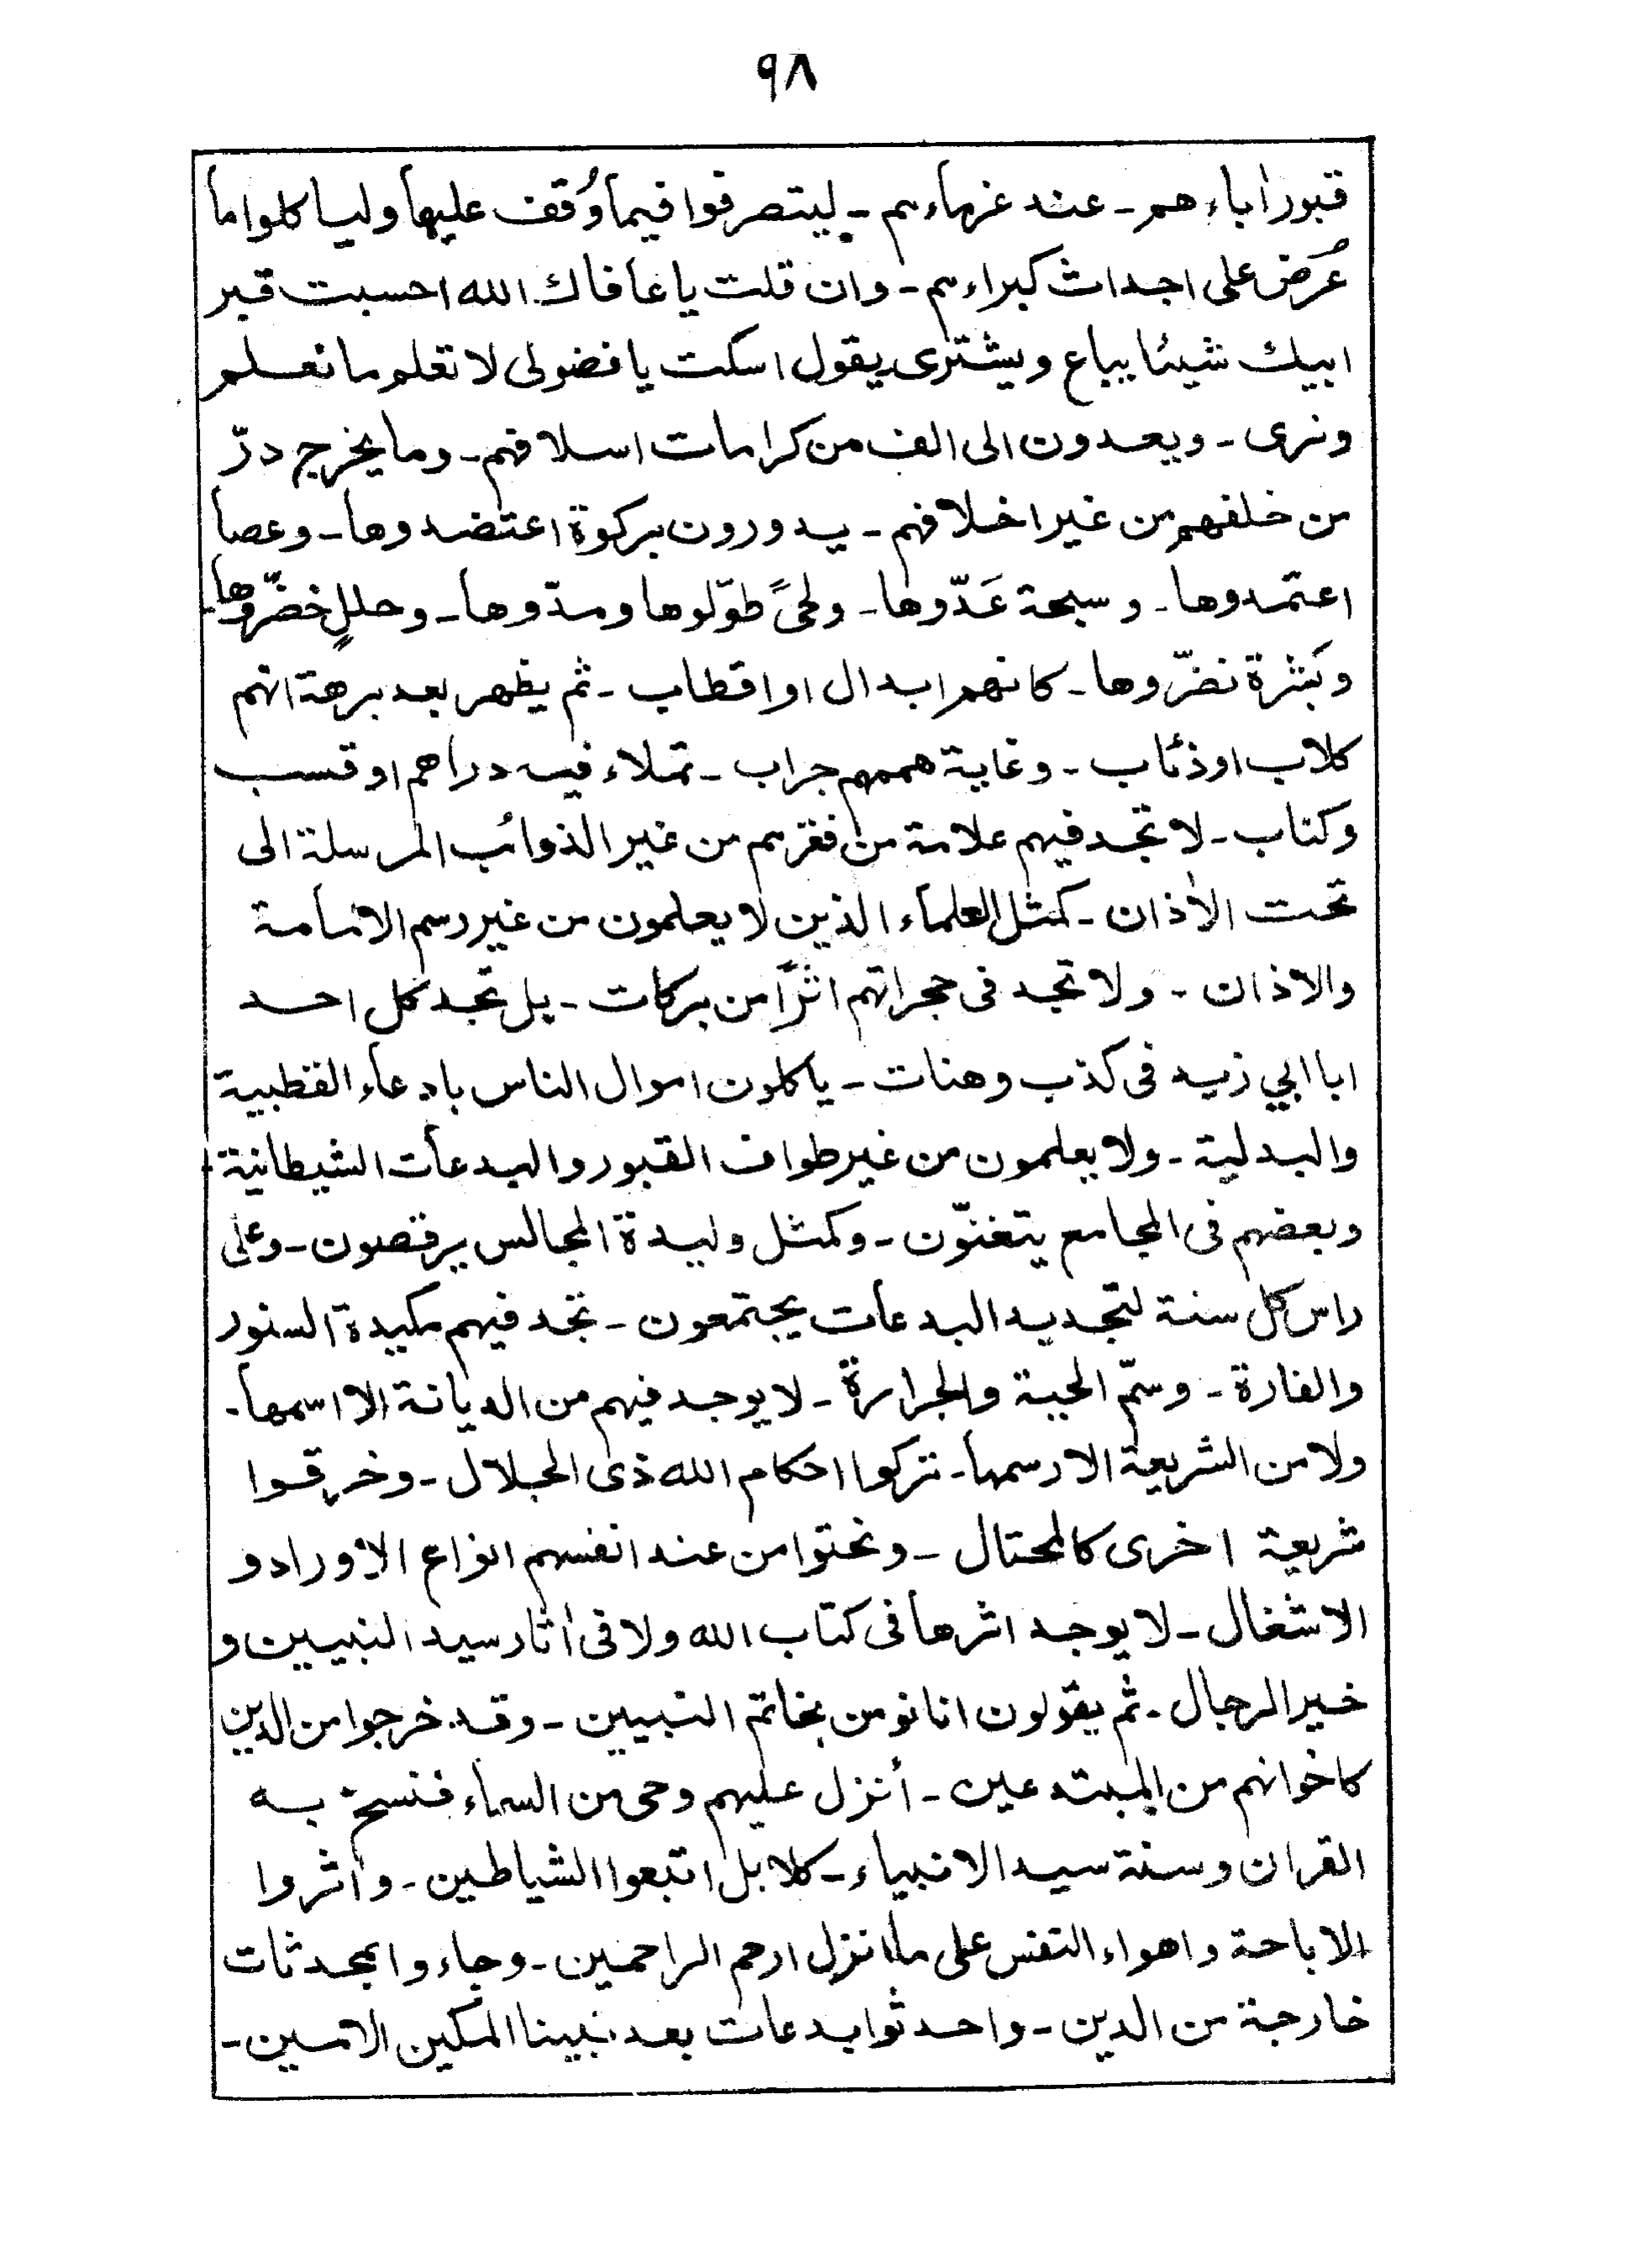 ٩٨
قبور اٰباءهم ـ عند غرماءهم ـ ليتصرفوا فيما وُقف عليها ولياكلوا ما
عُرض على اجداث كبراءهم ـ وان قلت يا عافاك الله احسبت قبر
ابيك شيئا يباع ويشترى يقول اسكت يا فضولى لا تعلم ما نعلم
ونرى ـ ويعدون الى الف من كرامات اسلافهم ـ وما يخرج درّ
من خلفهم من غير اخلافهم ـ يدورون بركوة اعتضدوها ـ وعصا
اعتمدوها ـ وسبحة عَدّوها ـ ولحىً طوّلوها ومدّوها ـ وحللٍ خضّروها ـ
وبَشرة نضّروها ـ كانهم ابدال او اقطاب ـ ثم يظهر بعد برهة انهم
كلاب او ذئاب ـ وغاية هممهم جراب ـ تملاء فيه دراهم او قسب
وكتاب ـ لا تجد فيهم علامة من فقرهم من غير الذوائب المرسلة الى
تحت الاٰذان ـ كمثل العلماء الذين لا يعلمون من غير رسم الامامة
والاذان ـ ولا تجد فى حجراتهم اثرًا من بركات ـ بل تجد كل احد
ابا ابي زيد فى كذب وهنات ـ ياكلون اموال الناس بادعاء القطبية
والبدلية ـ ولا يعلمون من غير طواف القبور والبدعات الشيطانية ـ
وبعضهم فى المجامع يتغنّون ـ وكمثل وليدة المجالس يرقصون ـ وعلى
راس كل سنة لتجديد البدعات يجتمعون ـ تجد فيهم مكيدة السنور
والفارة ـ وسمّ الحية والجرارة ـ لا يوجد فيهم من الديانة الا اسمها ـ
ولا من الشريعة الا رسمها ـ تركوا احكام الله ذى الجلال ـ وخرقوا
شريعة اخرى كالمحتال ـ ونحتوا من عند انفسهم انواع الاوراد و
الاشغال ـ لا يوجد اثرها فى كتاب الله ولا فى اٰثار سيد النبيين و
خير الرجال ـ ثم يقولون انا نومن بخاتم النبيين ـ وقد خرجوا من الدين
كاخوانهم من المبتدعين ـ أنزل عليهم وحى من السماء فنسخ به
القراٰن وسنة سيد الانبياء ـ كلا بل اتبعوا الشياطين ـ واٰثروا
الاباحة واهواء النفس على ما انزل ارحم الراحمين ـ وجاءوا بمحدثات
خارجة من الدين ـ واحدثوا بدعات بعد نبينا المكين الامين ـ